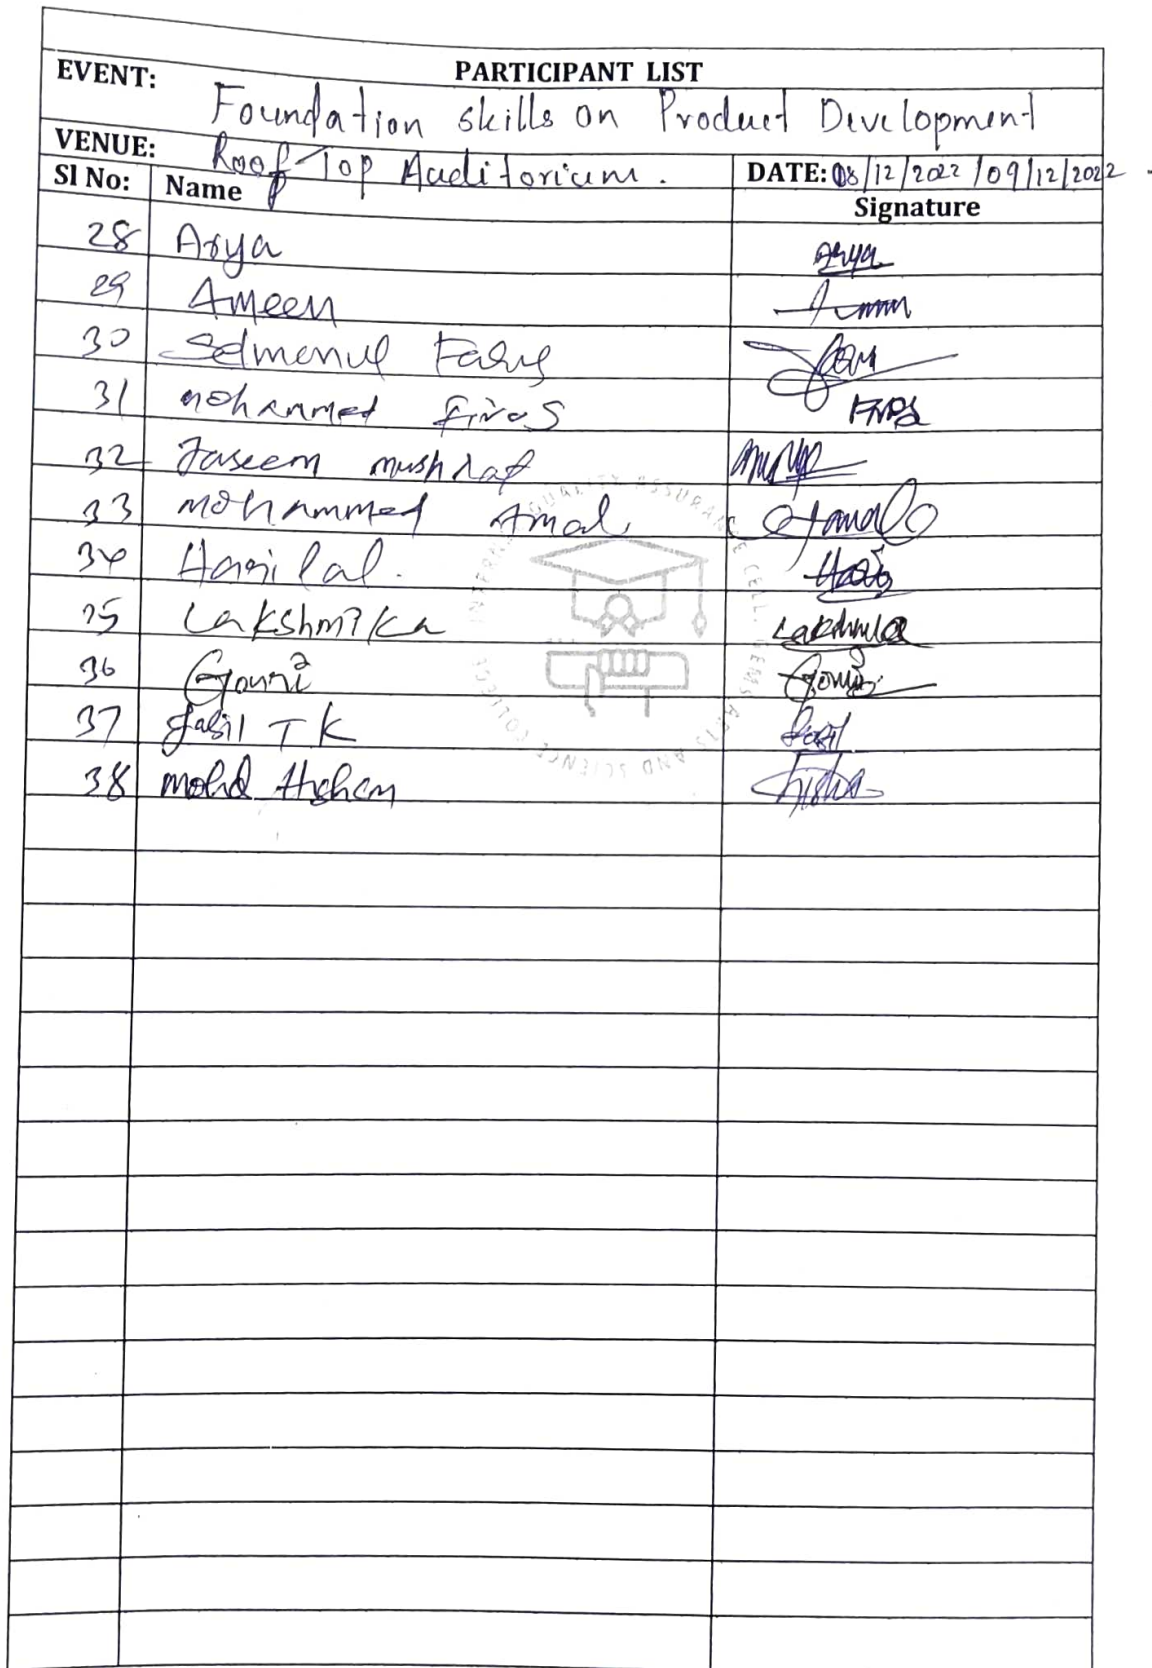 PARTICIPANT LIST
EVENT: Foundation skills on Product Development
VENUE: Roof-Top Auditorium.
DATE: 08/12/2022 /09/12/2022
Sl No: Name Signature
28 Arya Arya
29 Ameen
30 Selmenul Faris
31 mohammed firos
32 Jaseem mushraf
33 mohammed Amal Amal
34 Harilal. Hari
35 Lakshmika Lakshmika
36 Gouri Gouri
37 fasil T K fasil
38 mohd Hisham
INTERNAL QUALITY ASSURANCE CELL
EMS ARTS AND SCIENCE COLLEGE